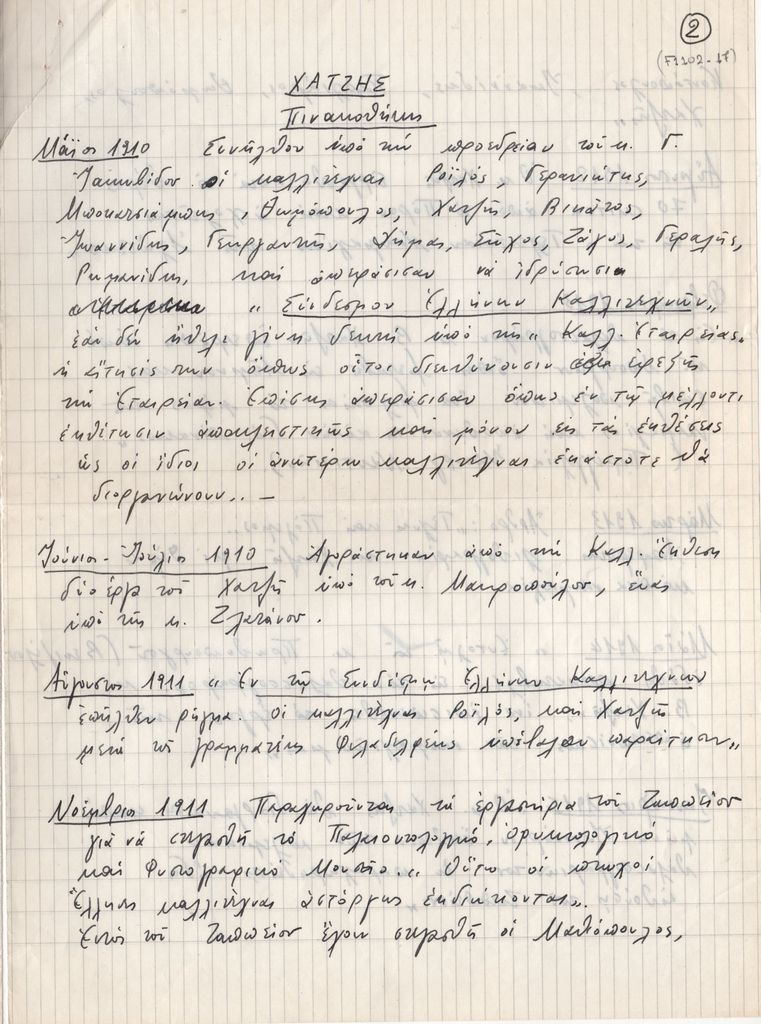 2
(F1102-17)
ΧΑΤΖΗΣ
Πινακοθήκης
Μάϊος 1910 Συνήλθον ὑπό τήν προεδρίαν τοῦ κ. Γ.
Ἰακωβίδου οἱ καλλιτέχναι Ροϊλός, Γερανιώτης,
Μποκατσιάμπης, Θωμόπουλος, Χατζῆς, Βικάτος,
Ἰωαννίδης, Γεωργαντῆς, Δήμας, Σῶχος, Ζάχος, Γεραλῆς,
Ρωμανίδης, καί ἀπεφάσισαν νά ἱδρύσωσιν
„ Σύνδεσμον Ἑλλήνων Καλλιτεχνῶν „
ἐάν δέν ἤθελε γίνη δεκτή ὑπό τῆς „ Καλλ. Ἑταιρείας „
ἡ αἴτησίς των ὅπως οὗτοι διευθύνουσιν ἐφεξῆς
τήν Ἑταιρείαν. Ἐπίσης ἀπεφάσισαν ὅπως ἐν τῷ μέλλοντι
ἐκθέτωσιν ἀποκλειστικῶς καί μόνον εἰς τάς ἐκθέσεις
ἅς οἱ ἴδιοι οἱ ἀνωτέρω καλλιτέχναι ἑκάστοτε θά
διοργανώνουν.. —
Ἰούνιος - Ἰούλιος 1910 Ἀγοράστηκαν ἀπό τήν Καλλ. Ἔκθεση
δύο ἔργα τοῦ Χατζῆ ὑπό τοῦ κ. Μαυροπούλου, ἕνας
ὑπό τῆς κ. Ζλατάνου.
Αὔγουστος 1911 „ Ἐν τῷ Συνδέσμῳ Ἑλλήνων Καλλιτεχνῶν
ἐπῆλθεν ρῆγμα. Οἱ καλλιτέχναι Ροϊλός, καί Χατζῆς
μετά τοῦ γραμματέως Φιλαδελφέως ὑπέβαλον παραίτησιν „
Νοέμβριος 1911 Παραχωροῦνται τά ἐργαστήρια τοῦ Ζαππείου
γιά νά στεγασθῆ τό Παλαιοντολογικό, Ὀρυκτολογικό
καί Φυσιογραφικό Μουσεῖο. „ Οὕτω οἱ πτωχοί
Ἕλληνες καλλιτέχναι ἀστόργως ἐκδιώκονται „.
Ἐντός τοῦ Ζαππείου ἔχουν στεγασθῆ οἱ Μαθιόπουλος,